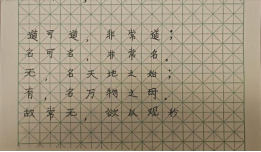 道可道，非常道；
名可名，非常名。
无，名天地之始；
有，名万物之母。
故常无，欲以观妙